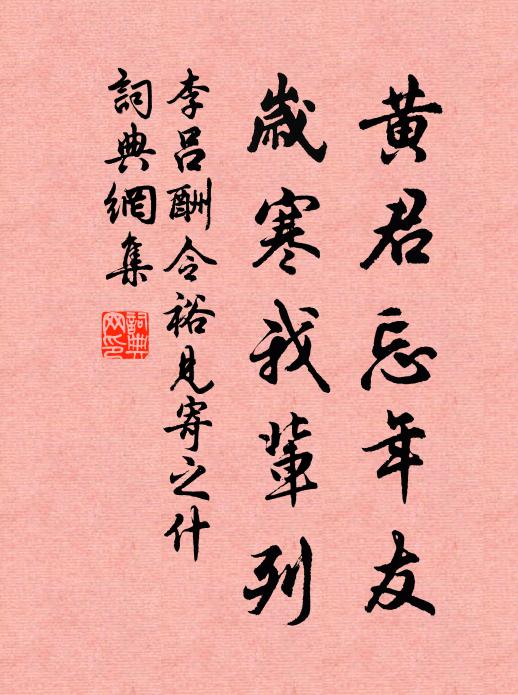 黃君忘年友
歲寒我輩列
李呂酬令裕見寄之什
詞典網集
詞典網印